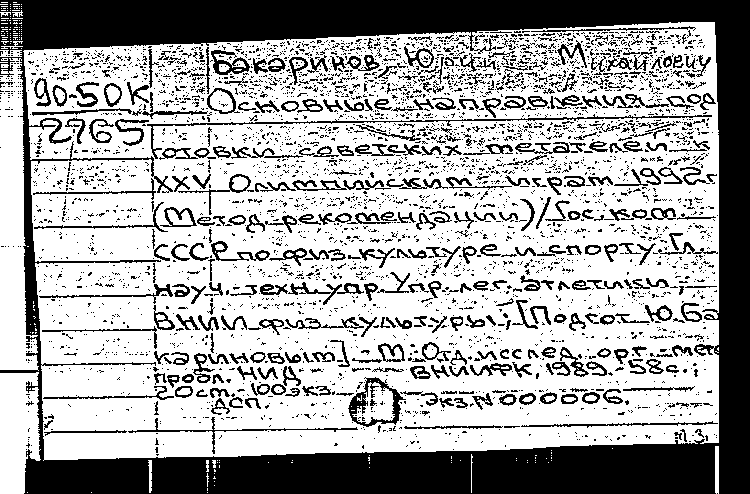 Бакаринов, Юрий Михайлович
90-50К
Основные направления под
2765
готовки советских метателей к
XXV Олимпийским играм 1992г
(Метод. рекомендации)/Гос. ком.
СССР по физ. культуре и спорту. Гл.
науч.-техн. упр. Упр. лег. атлетики;
ВНИИ физ. культуры; [Подгот. Ю. Ба
кариновым]. - М.: Отд. исслед. орг.-мето
пробл. НИД ВНИИФК, 1989. - 58с.;
20см. - 100экз.
ДСП. экз. N 000006.
М.З.